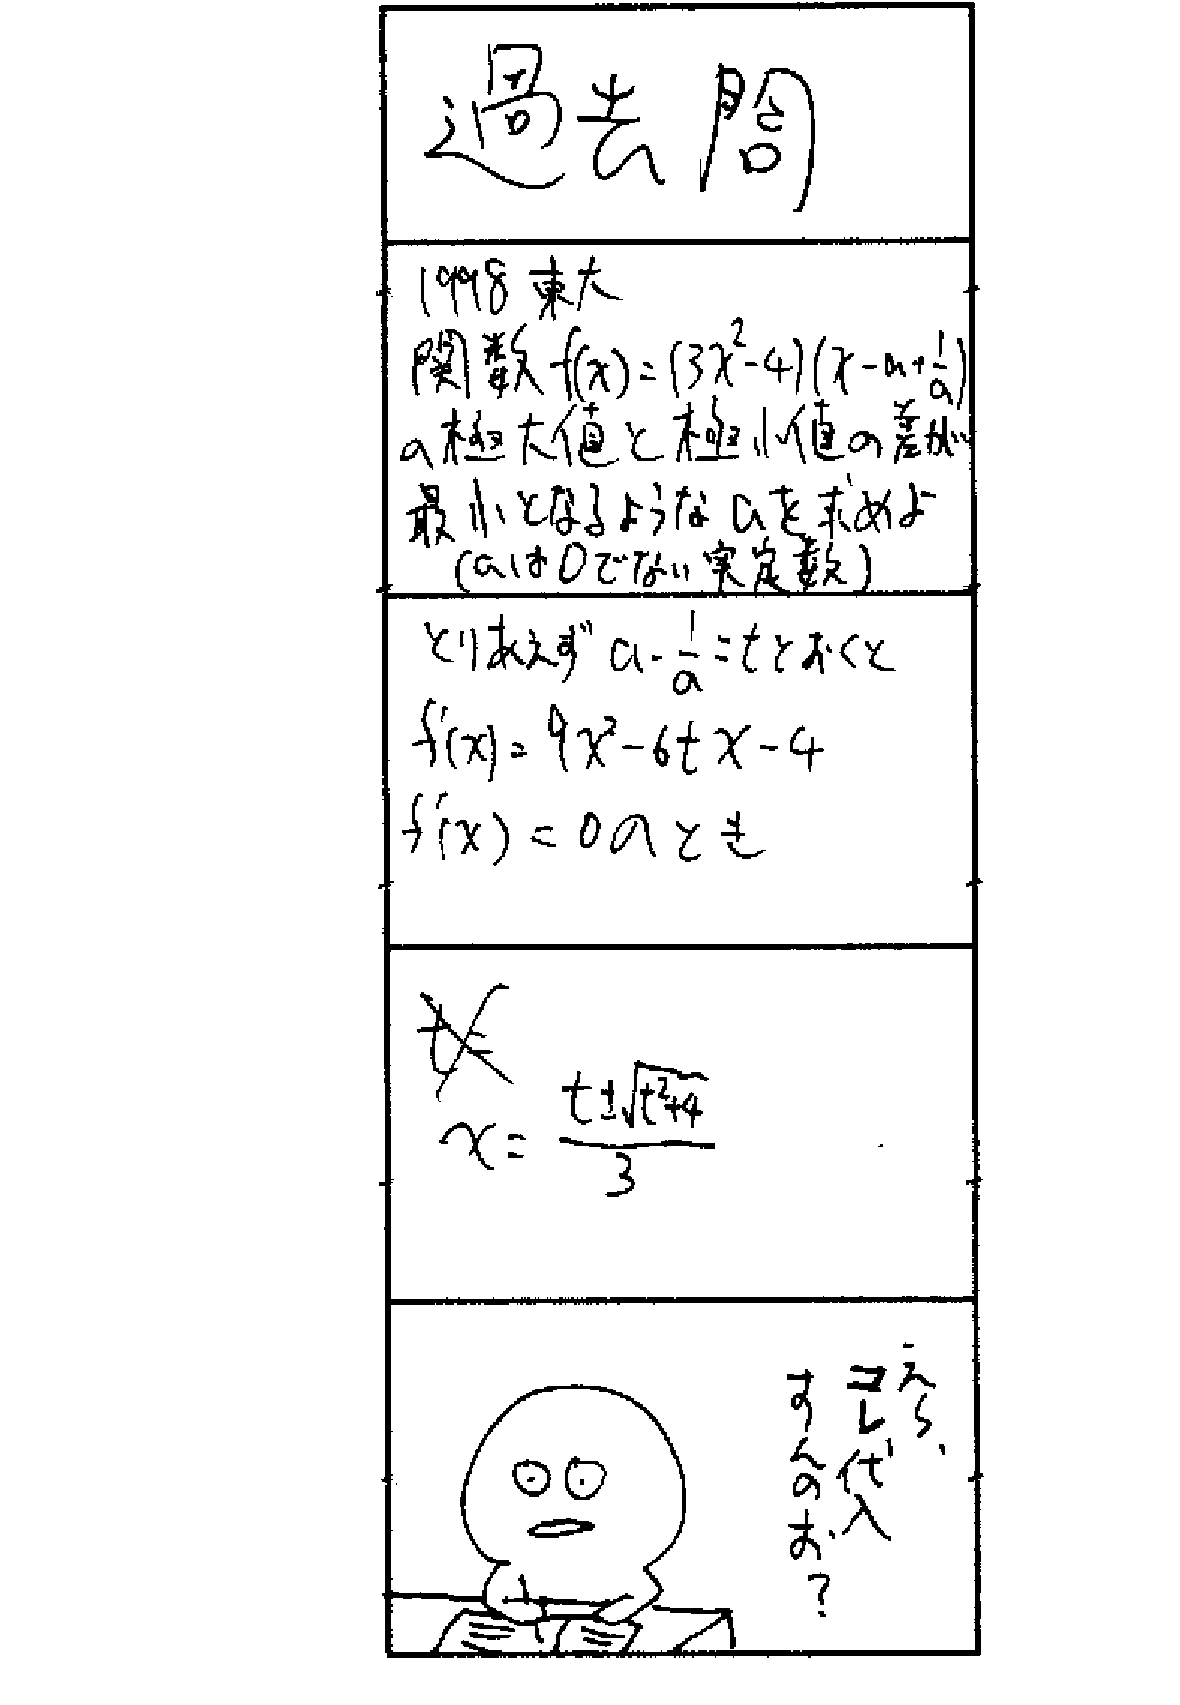 過去問
1998 東大
関数 f(x)=(3x²-4)(x-a+1/a)
の極大値と極小値の差が
最小となるようなaを求めよ
(aは0でない実定数)
とりあえず a-1/a=tとおくと
f'(x)=9x²-6tx-4
f'(x)=0のとき
t=
x=(t±√(t²+4))/3
えら、
コレ代入
すんのお?